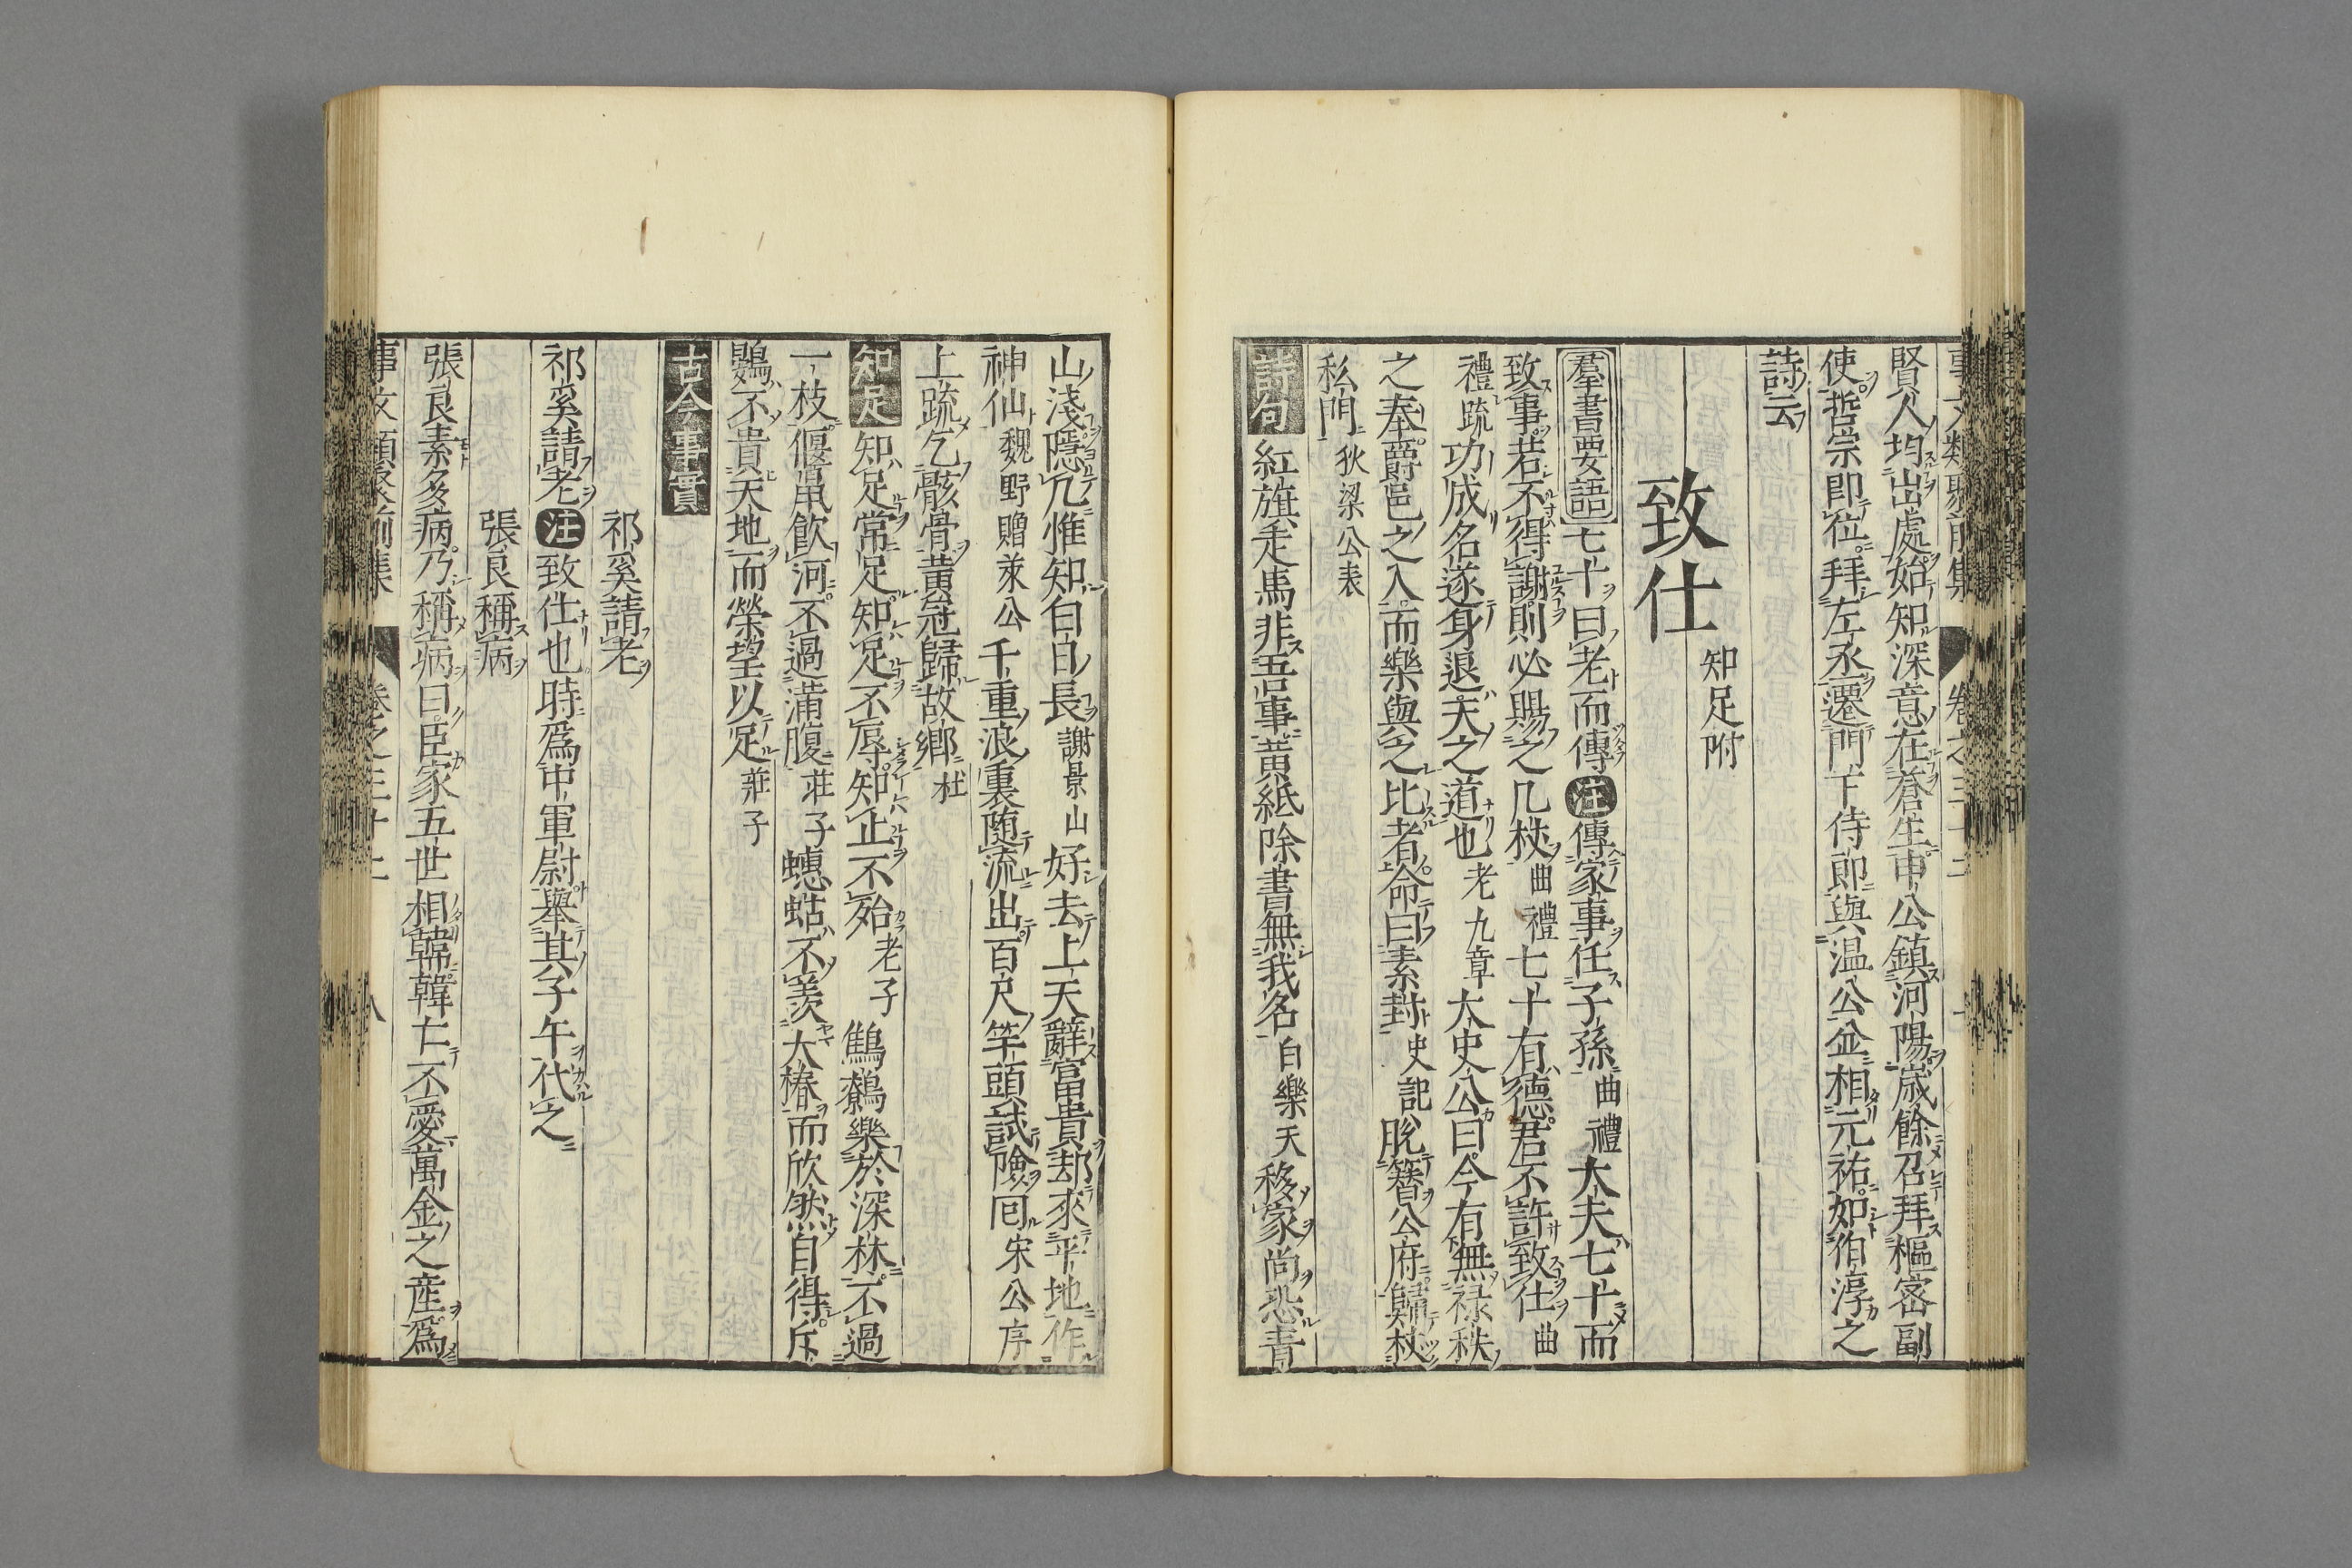 事文類聚前集 卷之三十二
賢人均出處始知深意在蒼生申公鎮河陽歳餘召拜樞密副
使哲宗即位拜左丞遷門下侍郎與温公並相元祐如伯淳之
詩云
致仕 知足附
羣書要語 七十曰老而傳 注 傳家事任子孫 曲禮 大夫七十而
致事若不得謝則必賜之几杖 曲禮 七十有德君不許致仕 曲
禮疏 功成名遂身退天之道也 老九章 太史公曰今有無祿秩
之奉爵邑之入而樂與之比者命曰素封 史記 脫簪公府歸杖
私門 狄梁公表
詩句 紅旗走馬非吾事黄紙除書無我名 白樂天 移家尚恐青
山淺隱几惟知白日長 謝景山 好去上天辭富貴却來平地作
神仙 魏野贈萊公 千重浪裏随流出百尺竿頭試險囘 宋公序
上䟽乞骸骨黄冠歸故鄉 杜
知足 知足常足知足不辱知止不殆 老子 鷦鷯樂於深林不過
一枝偃鼠飲河不過滿腹 莊子 蟪蛄不羨大椿而欣然自得斥
鷃不貴天地而榮望以足 莊子
古今事實
祁奚請老
祁奚請老 注 致仕也時爲中軍尉舉其子午代之
張良稱病
張良素多病乃稱病曰臣家五世相韓韓亡不愛萬金之産爲
事文類聚前集 卷之三十二 八